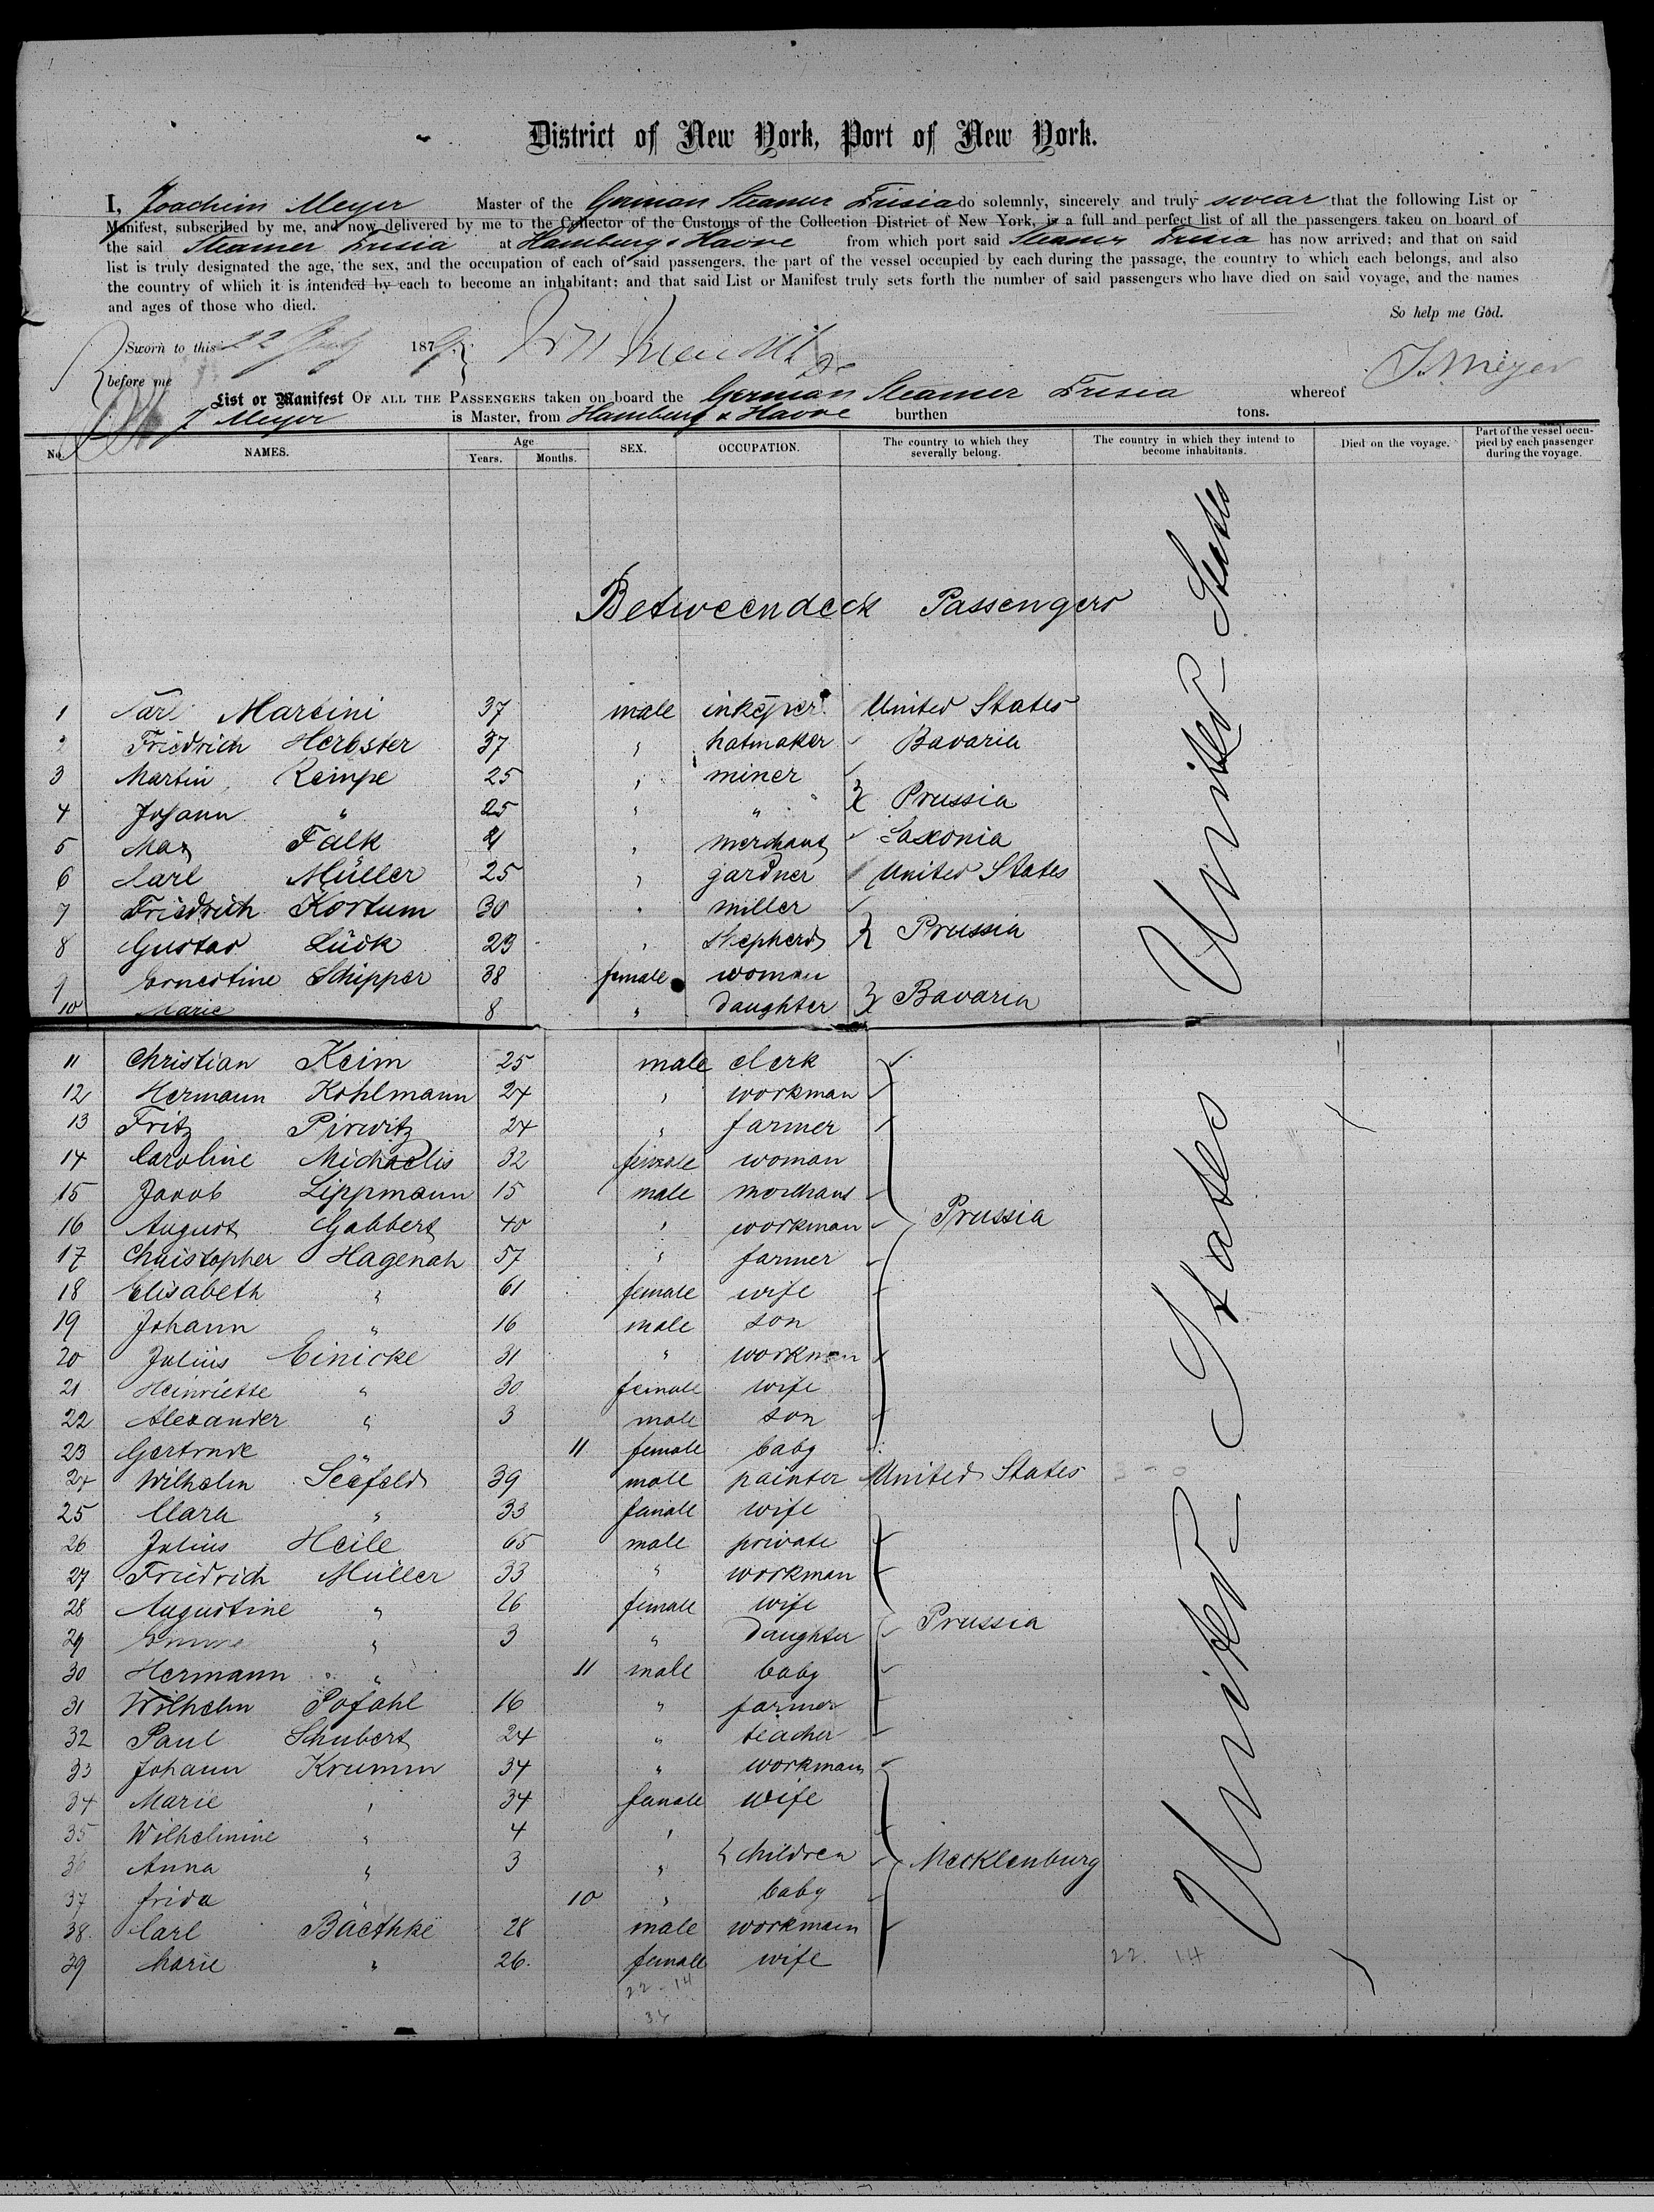 District of New York, Port of New York.
I, Joachim Meyer Master of the German Steamer Frisia do solemnly, sincerely and truly swear that the following List or
Manifest, subscribed by me, and now delivered by me to the Collector of the Customs of the Collection District of New York, is a full and perfect list of all the passengers taken on board of
the said Steamer Frisia at Hamburg & Havre from which port said Steamer Frisia has now arrived; and that on said
list is truly designated the age, the sex, and the occupation of each of said passengers, the part of the vessel occupied by each during the passage, the country to which each belongs, and also
the country of which it is intended by each to become an inhabitant; and that said List or Manifest truly sets forth the number of said passengers who have died on said voyage, and the names
and ages of those who died. So help me God.
Sworn to this 22 July 1879
before me J. Meyer
List or Manifest OF ALL THE PASSENGERS taken on board the German Steamer Frisia whereof
J Meyer is Master, from Hamburg & Havre burthen tons.
No. NAMES. Age Years. Months. SEX. OCCUPATION. The country to which they severally belong. The country in which they intend to become inhabitants. Died on the voyage. Part of the vessel occupied by each passenger during the voyage.
Betweendeck Passengers
United States
1 Carl Martini 37 male inkeper United States
2 Friedrich Herbster 37 " hatmaker Bavaria
3 Martin Kempe 25 " miner
4 Johann " 25 " " Prussia
5 Max Falk 21 " merchant Saxonia
6 Carl Müller 25 " gardner United States
7 Friedrich Kortum 30 " miller
8 Gustav Lück 23 " shepherd Prussia
9 Ernestine Schipper 38 female woman
10 Marie 8 " daughter Bavaria
11 Christian Keim 25 male clerk
12 Hermann Kohlmann 24 " workman
13 Fritz Pirwitz 24 " farmer
14 Caroline Michaelis 32 female woman
15 Jacob Lippmann 15 male merchant
16 August Gabbert 40 " workman Prussia
17 Christopher Hagenah 57 " farmer
18 Elisabeth " 61 female wife
19 Johann " 16 male son
20 Julius Einicke 31 " workman
21 Heinriette " 30 female wife
22 Alexander " 3 male son
23 Gertrude " 11 female baby
24 Wilhelm Seefeld 39 male painter United States
25 Clara " 33 female wife
26 Julius Heile 65 male private
27 Friedrich Müller 33 " workman
28 Augustine " 26 female wife
29 Emma " 3 " daughter Prussia
30 Hermann " 11 male baby
31 Wilhelm Pofahl 16 " farmer
32 Paul Schubert 24 " teacher
33 Johann Krumm 34 " workman
34 Marie " 34 female wife
35 Wilhelmine " 4 "
36 Anna " 3 " children Mecklenburg
37 Frida " 10 " baby
38 Carl Baethke 28 male workman
39 Marie " 26 female wife
United States
22 14
22-14
36